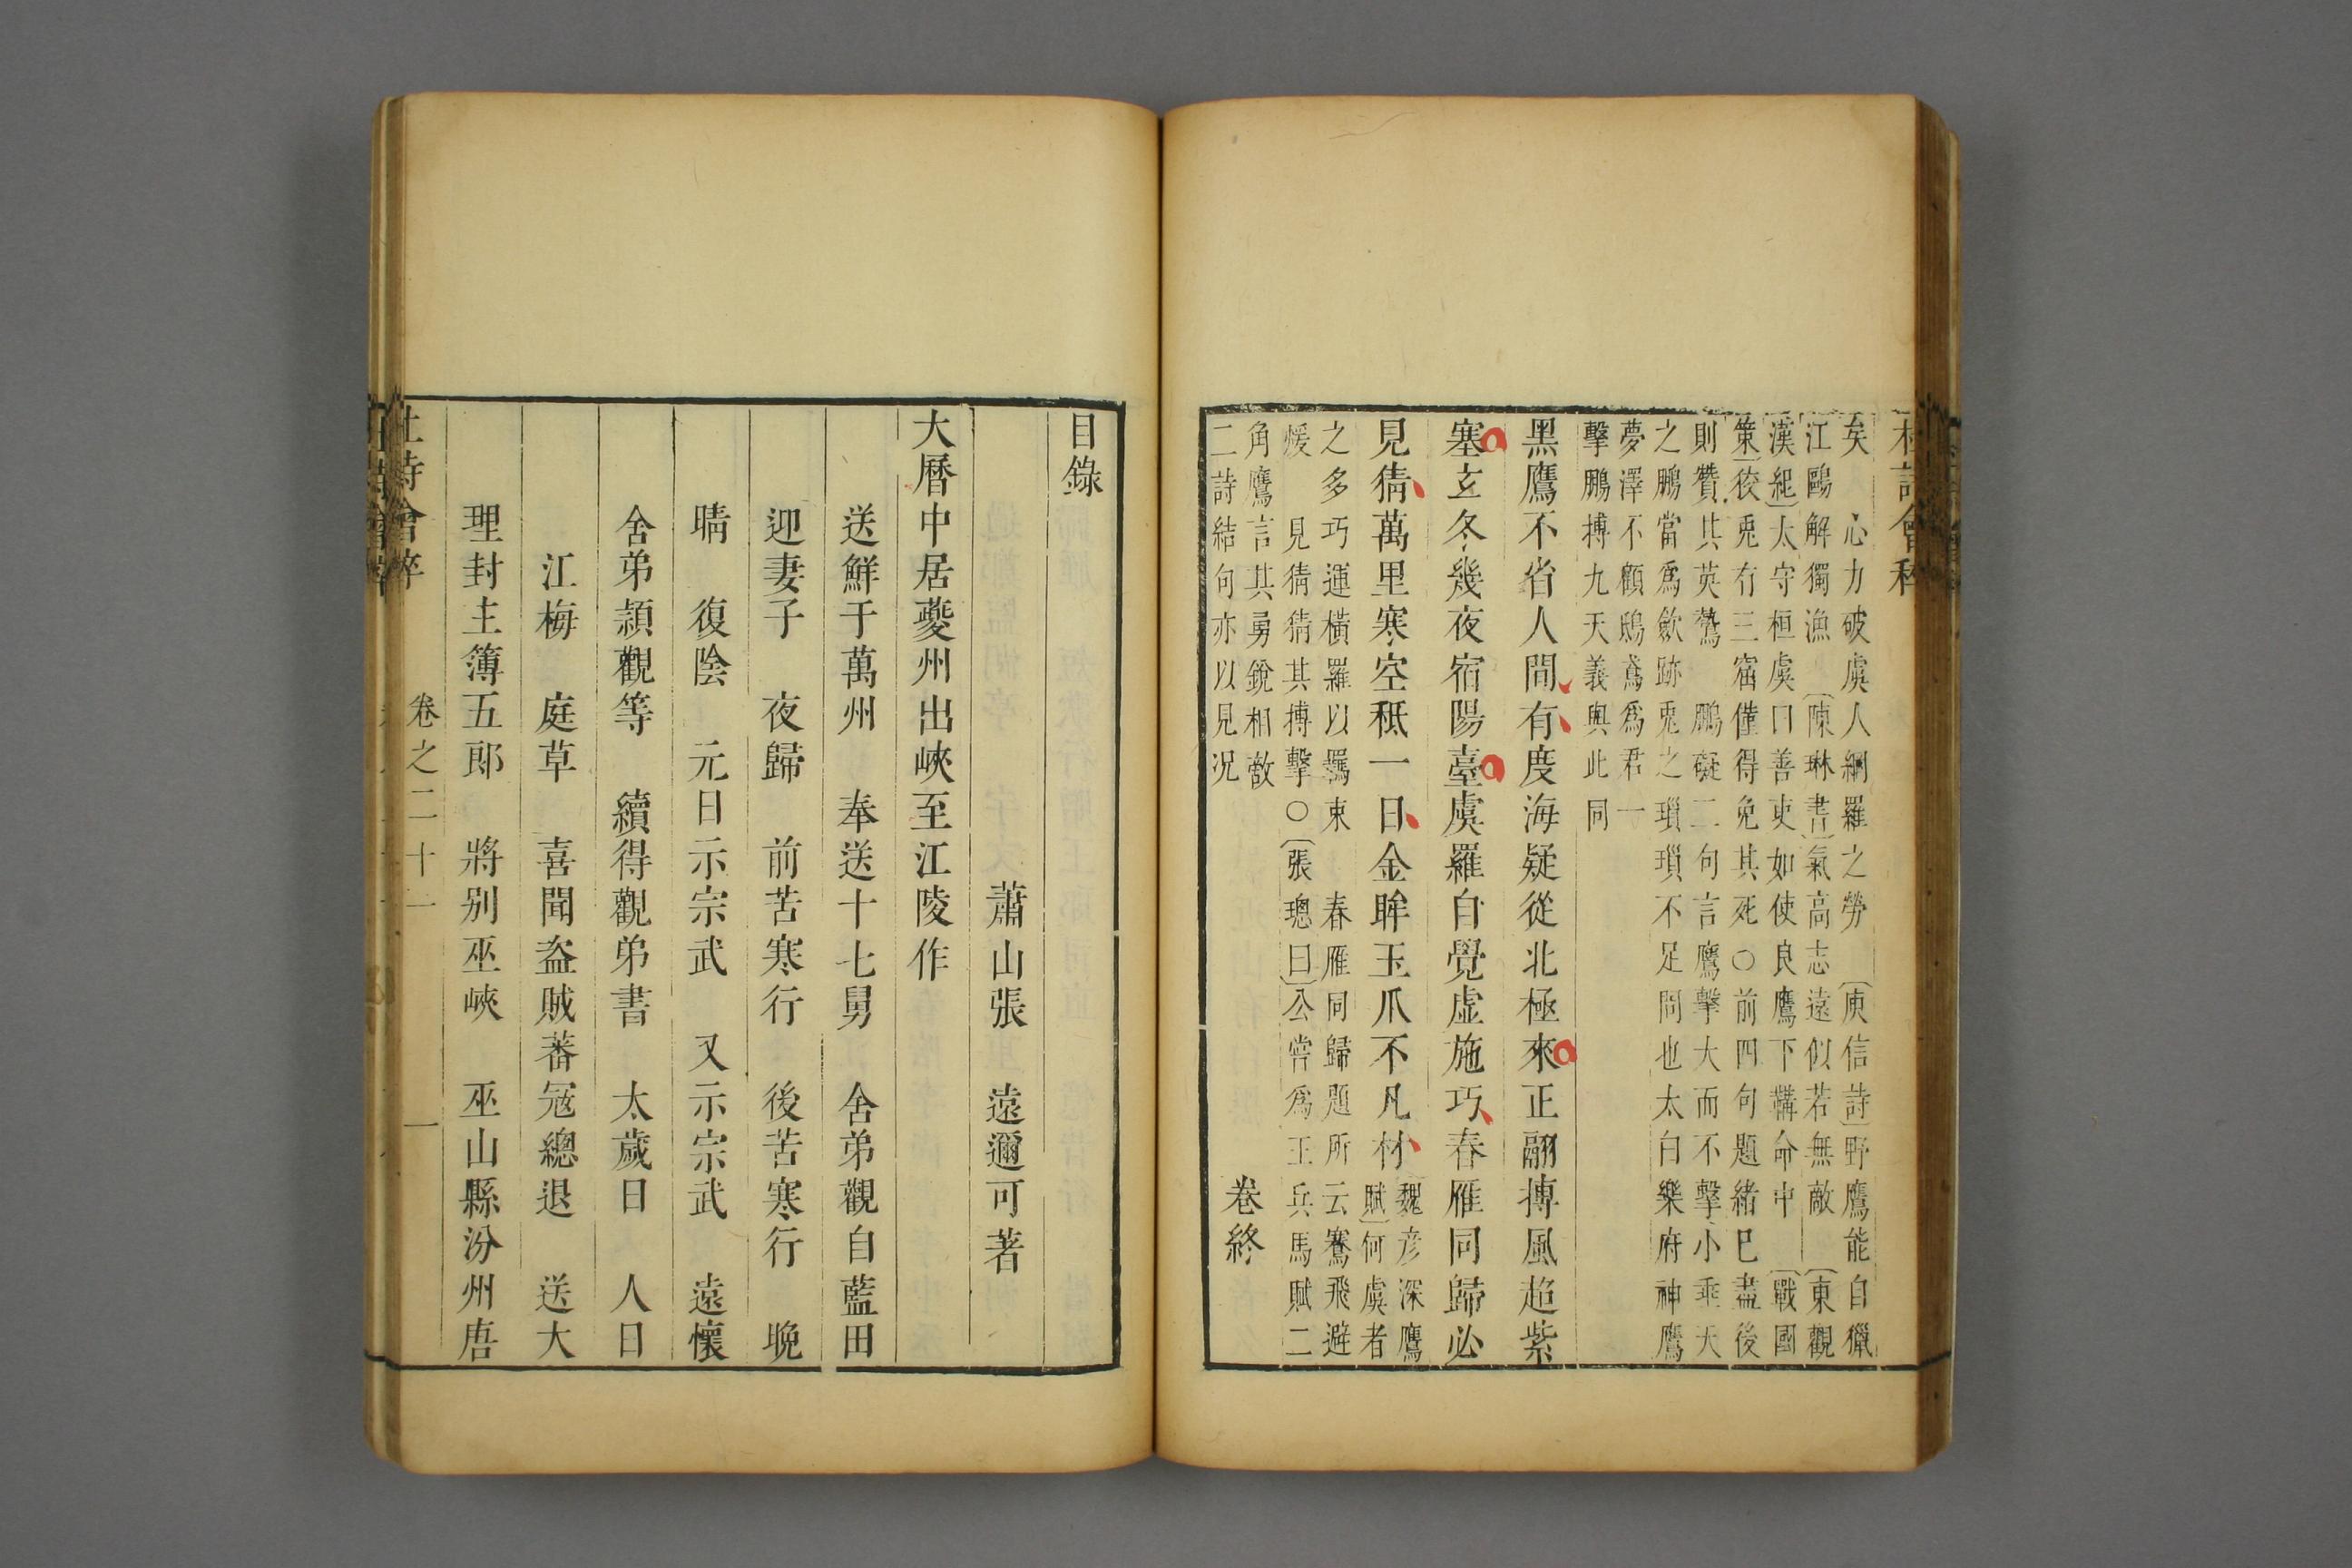 杜詩會稡
矣　心力破虞人網羅之勞　〔庾信詩〕野鷹能自獵
江鷗解獨漁　〔陳琳書〕氣高志遠似若無敵　〔東觀
漢紀〕太守桓虞曰善吏如使良鷹下鞲命中　〔戰國
策〕狡兎有三窟僅得免其死○前四句題緒已盡後
則贊其英鷙　鵬礙二句言鷹擊大而不擊小垂天
之鵬當爲歛跡兎之瑣瑣不足問也太白樂府神鷹
夢澤不顧鴟鳶爲君一
擊鵬搏九天義與此同
黑鷹不省人間有度海疑從北極來正翮摶風超紫
塞玄冬幾夜宿陽臺虞羅自覺虚施巧春雁同歸必
見猜萬里寒空秪一日金眸玉爪不凡材
〔魏彦深鷹
賦〕何虞者
之多巧運橫羅以羈束　春雁同歸題所云騫飛避
煖　見猜猜其搏擊○〔張璁曰〕公嘗爲王兵馬賦二
角鷹言其勇銳相敵
二詩結句亦以見况
卷終
目錄
蕭山張　遠邇可著
大曆中居夔州出峽至江陵作
送鮮于萬州　奉送十七舅　舍弟觀自藍田
迎妻子　夜歸　前苦寒行　後苦寒行　晚
晴　復陰　元日示宗武　又示宗武　遠懷
舍弟潁觀等　續得觀弟書　太歲日　人日
江梅　庭草　喜聞盗賊蕃冦總退　送大
理封主簿五郎　將别巫峽　巫山縣汾州唐
杜詩會稡　卷之二十一　一